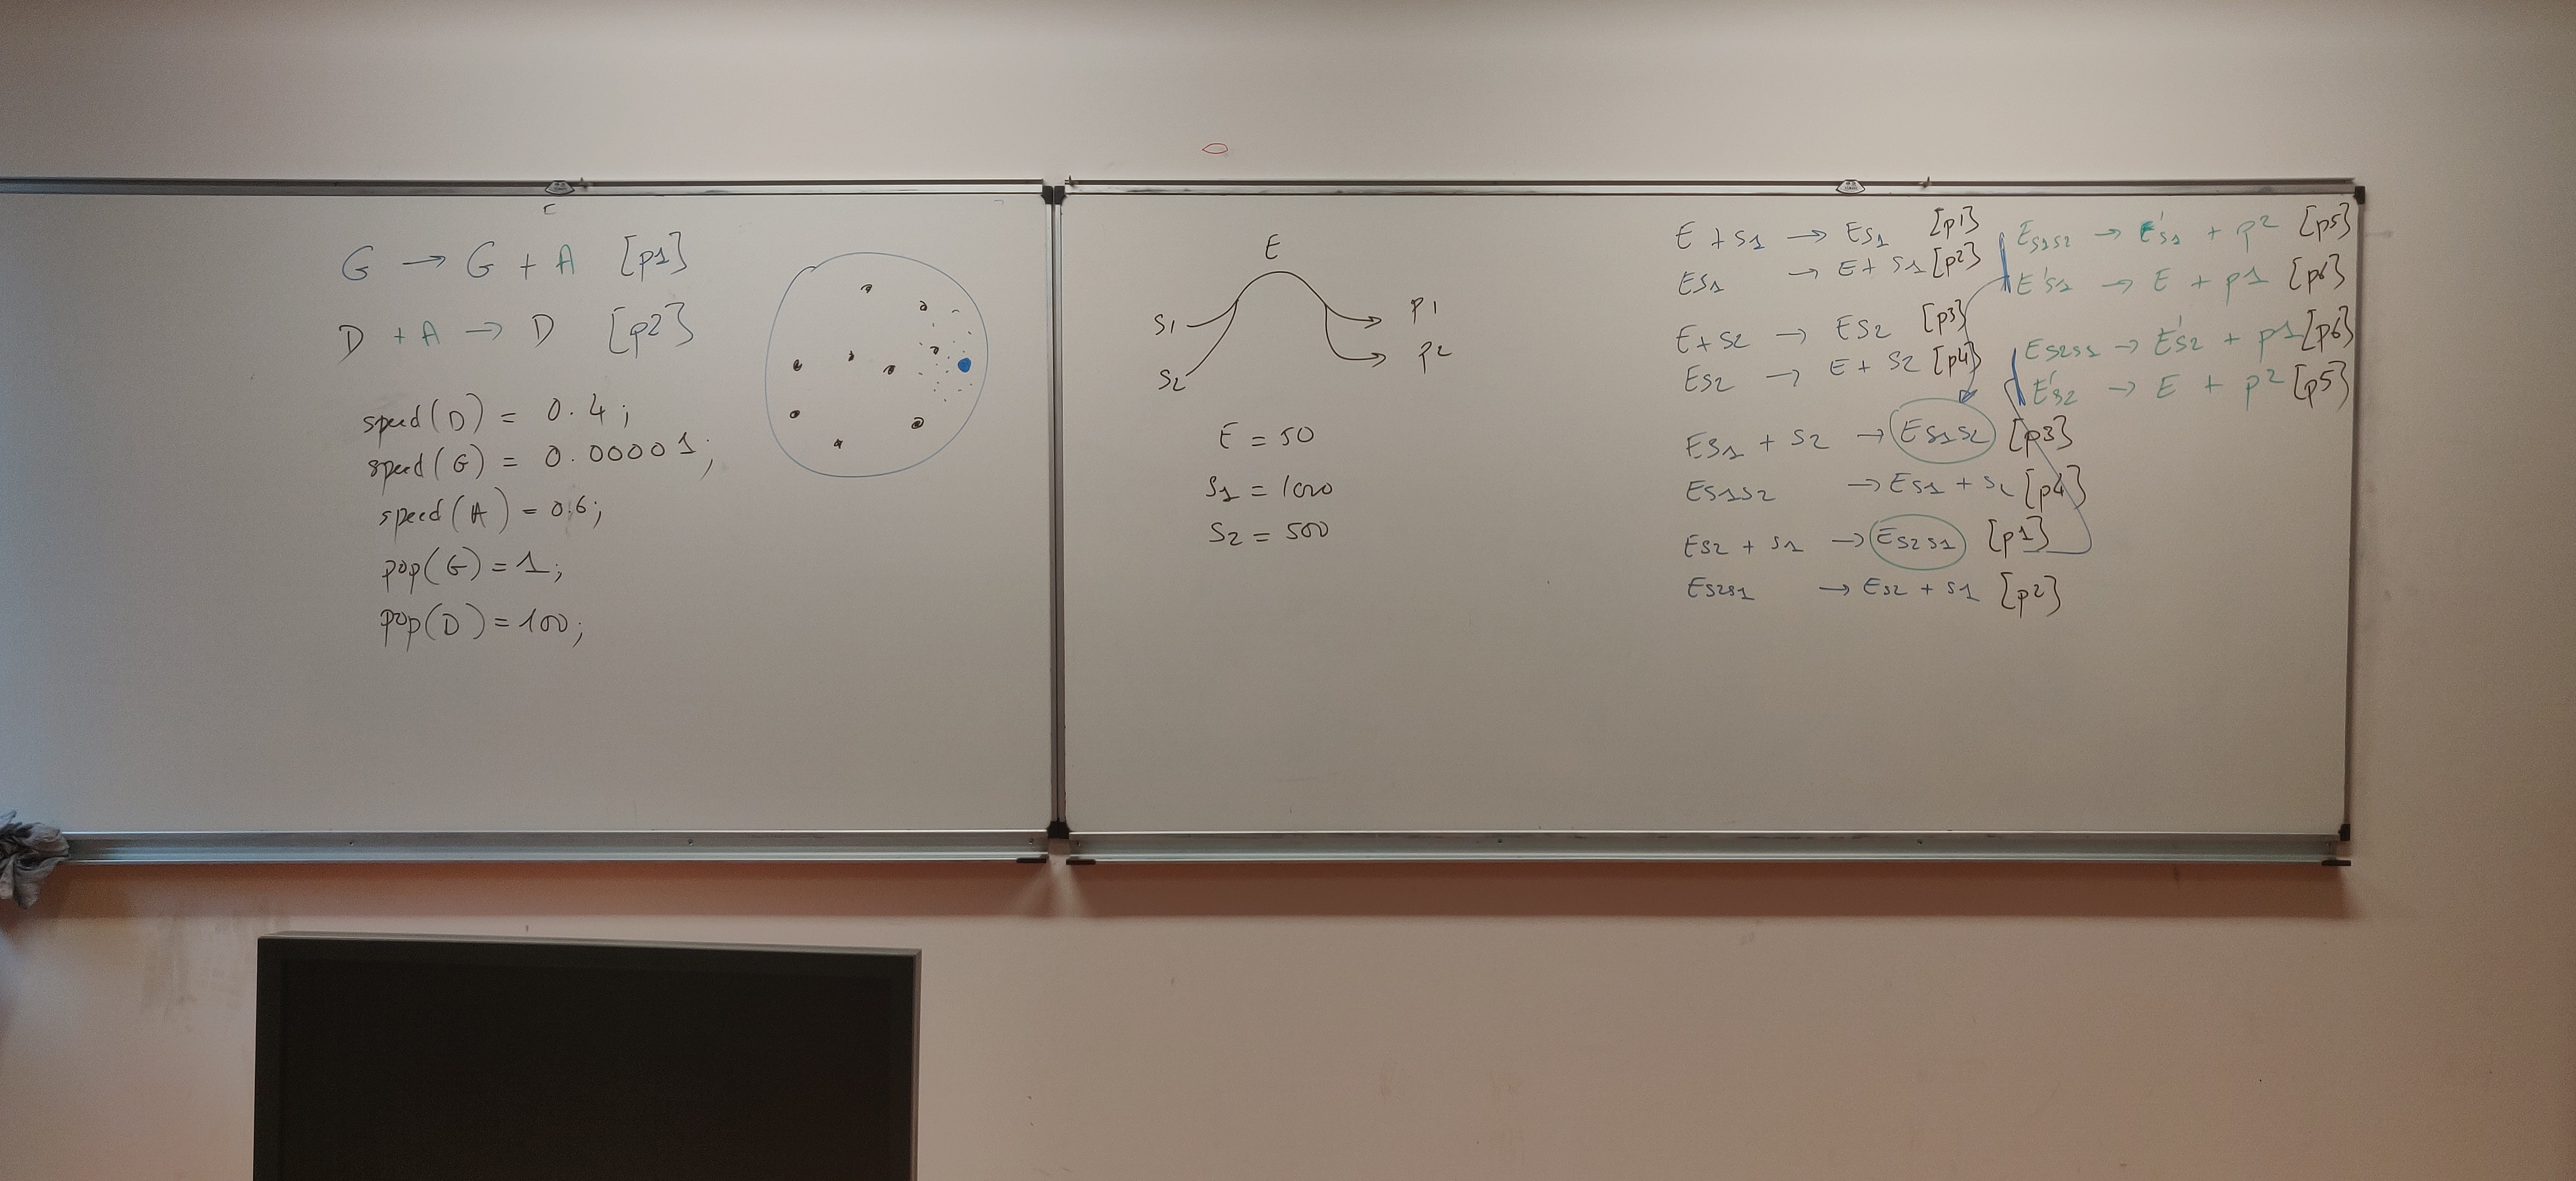 G → G + A [p1]
D + A → D [p2]
speed(D) = 0.4;
speed(G) = 0.00001;
speed(A) = 0.6;
pop(G) = 1;
pop(D) = 100;
E
S1
S2
p1
p2
E = 50
S1 = 1000
S2 = 500
E + S1 → ES1 [p1]
ES1 → E + S1 [p2]
E + S2 → ES2 [p3]
ES2 → E + S2 [p4]
ES1 + S2 → ES1S2 [p3]
ES1S2 → ES1 + S2 [p4]
ES2 + S1 → ES2S1 [p1]
ES2S1 → ES2 + S1 [p2]
ES1S2 → E'S1 + p2 [p5]
E'S1 → E + p1 [p6]
ES2S1 → E'S2 + p1 [p6]
E'S2 → E + p2 [p5]